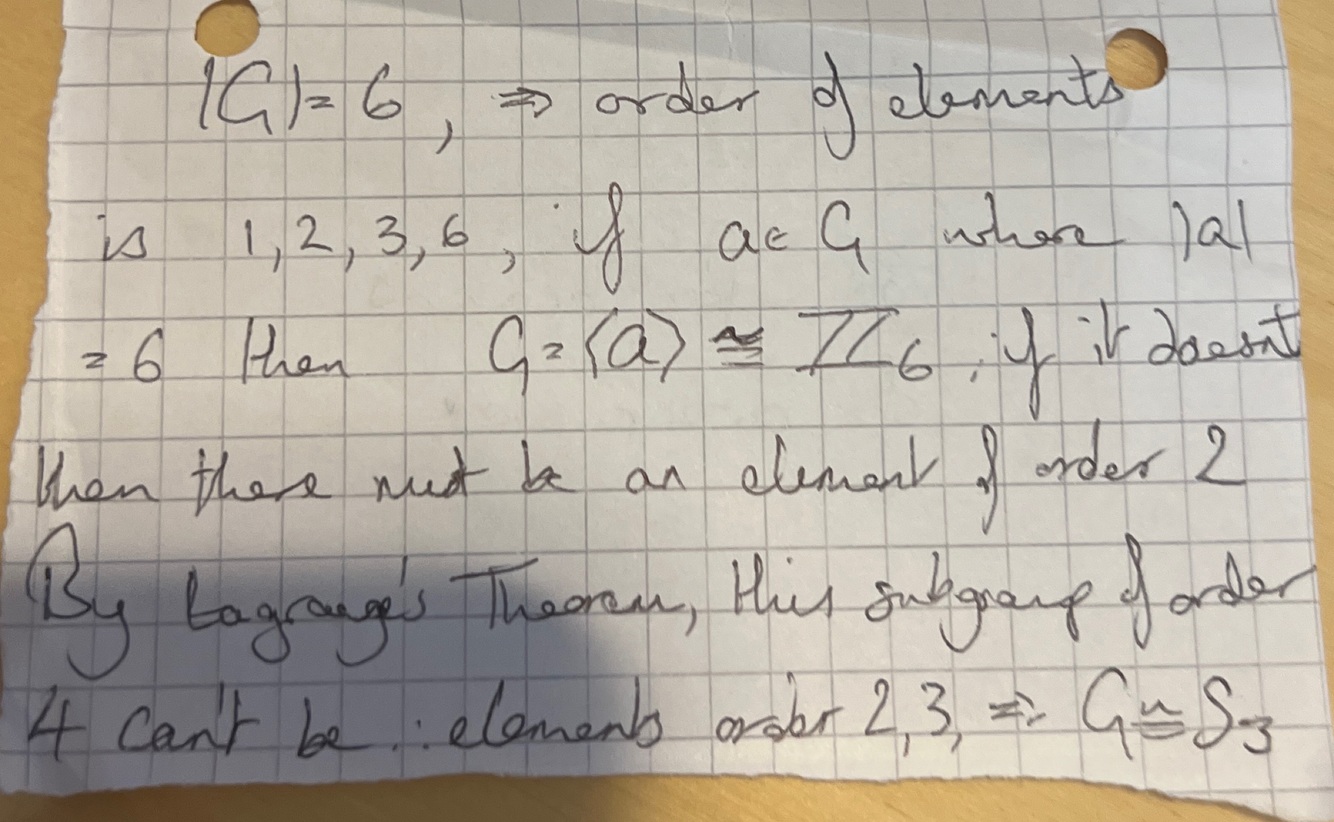 |G| = 6, ⇒ order of elements
is 1, 2, 3, 6, if a ∈ G where |a|
= 6 then G = ⟨a⟩ ≅ ℤ₆, if it doesnt
then there must be an element of order 2
By Lagrange's Theorem, this subgroup of order
4 can't be ∴ elements order 2, 3, ⇒ G ≅ S₃